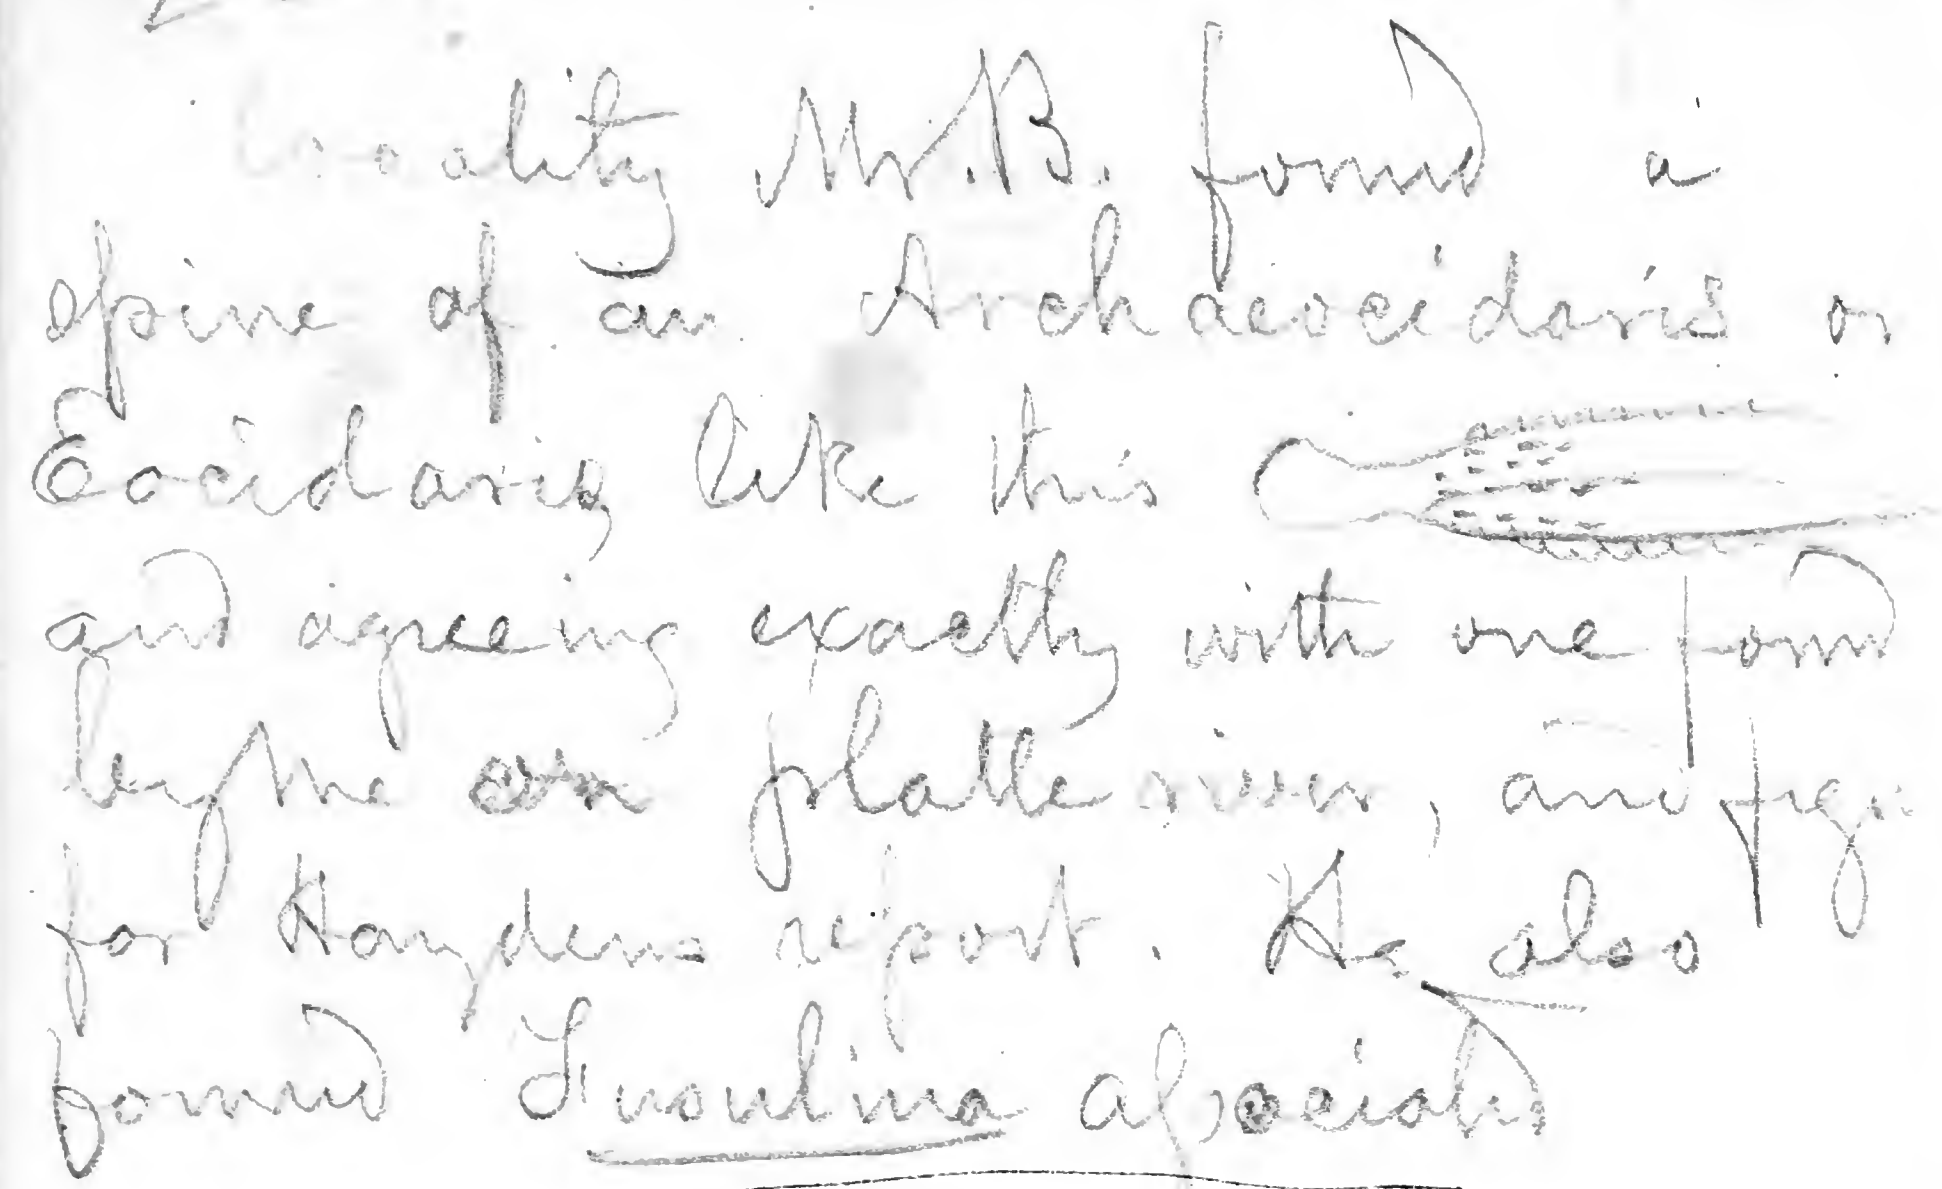 locality Mr. B. found a
spine of an Archaeocidaris or
Eocidaris, like this
and agreeing exactly with one found
by me on platte river, and figu
for Haydens report. He also
found Fusulina associated